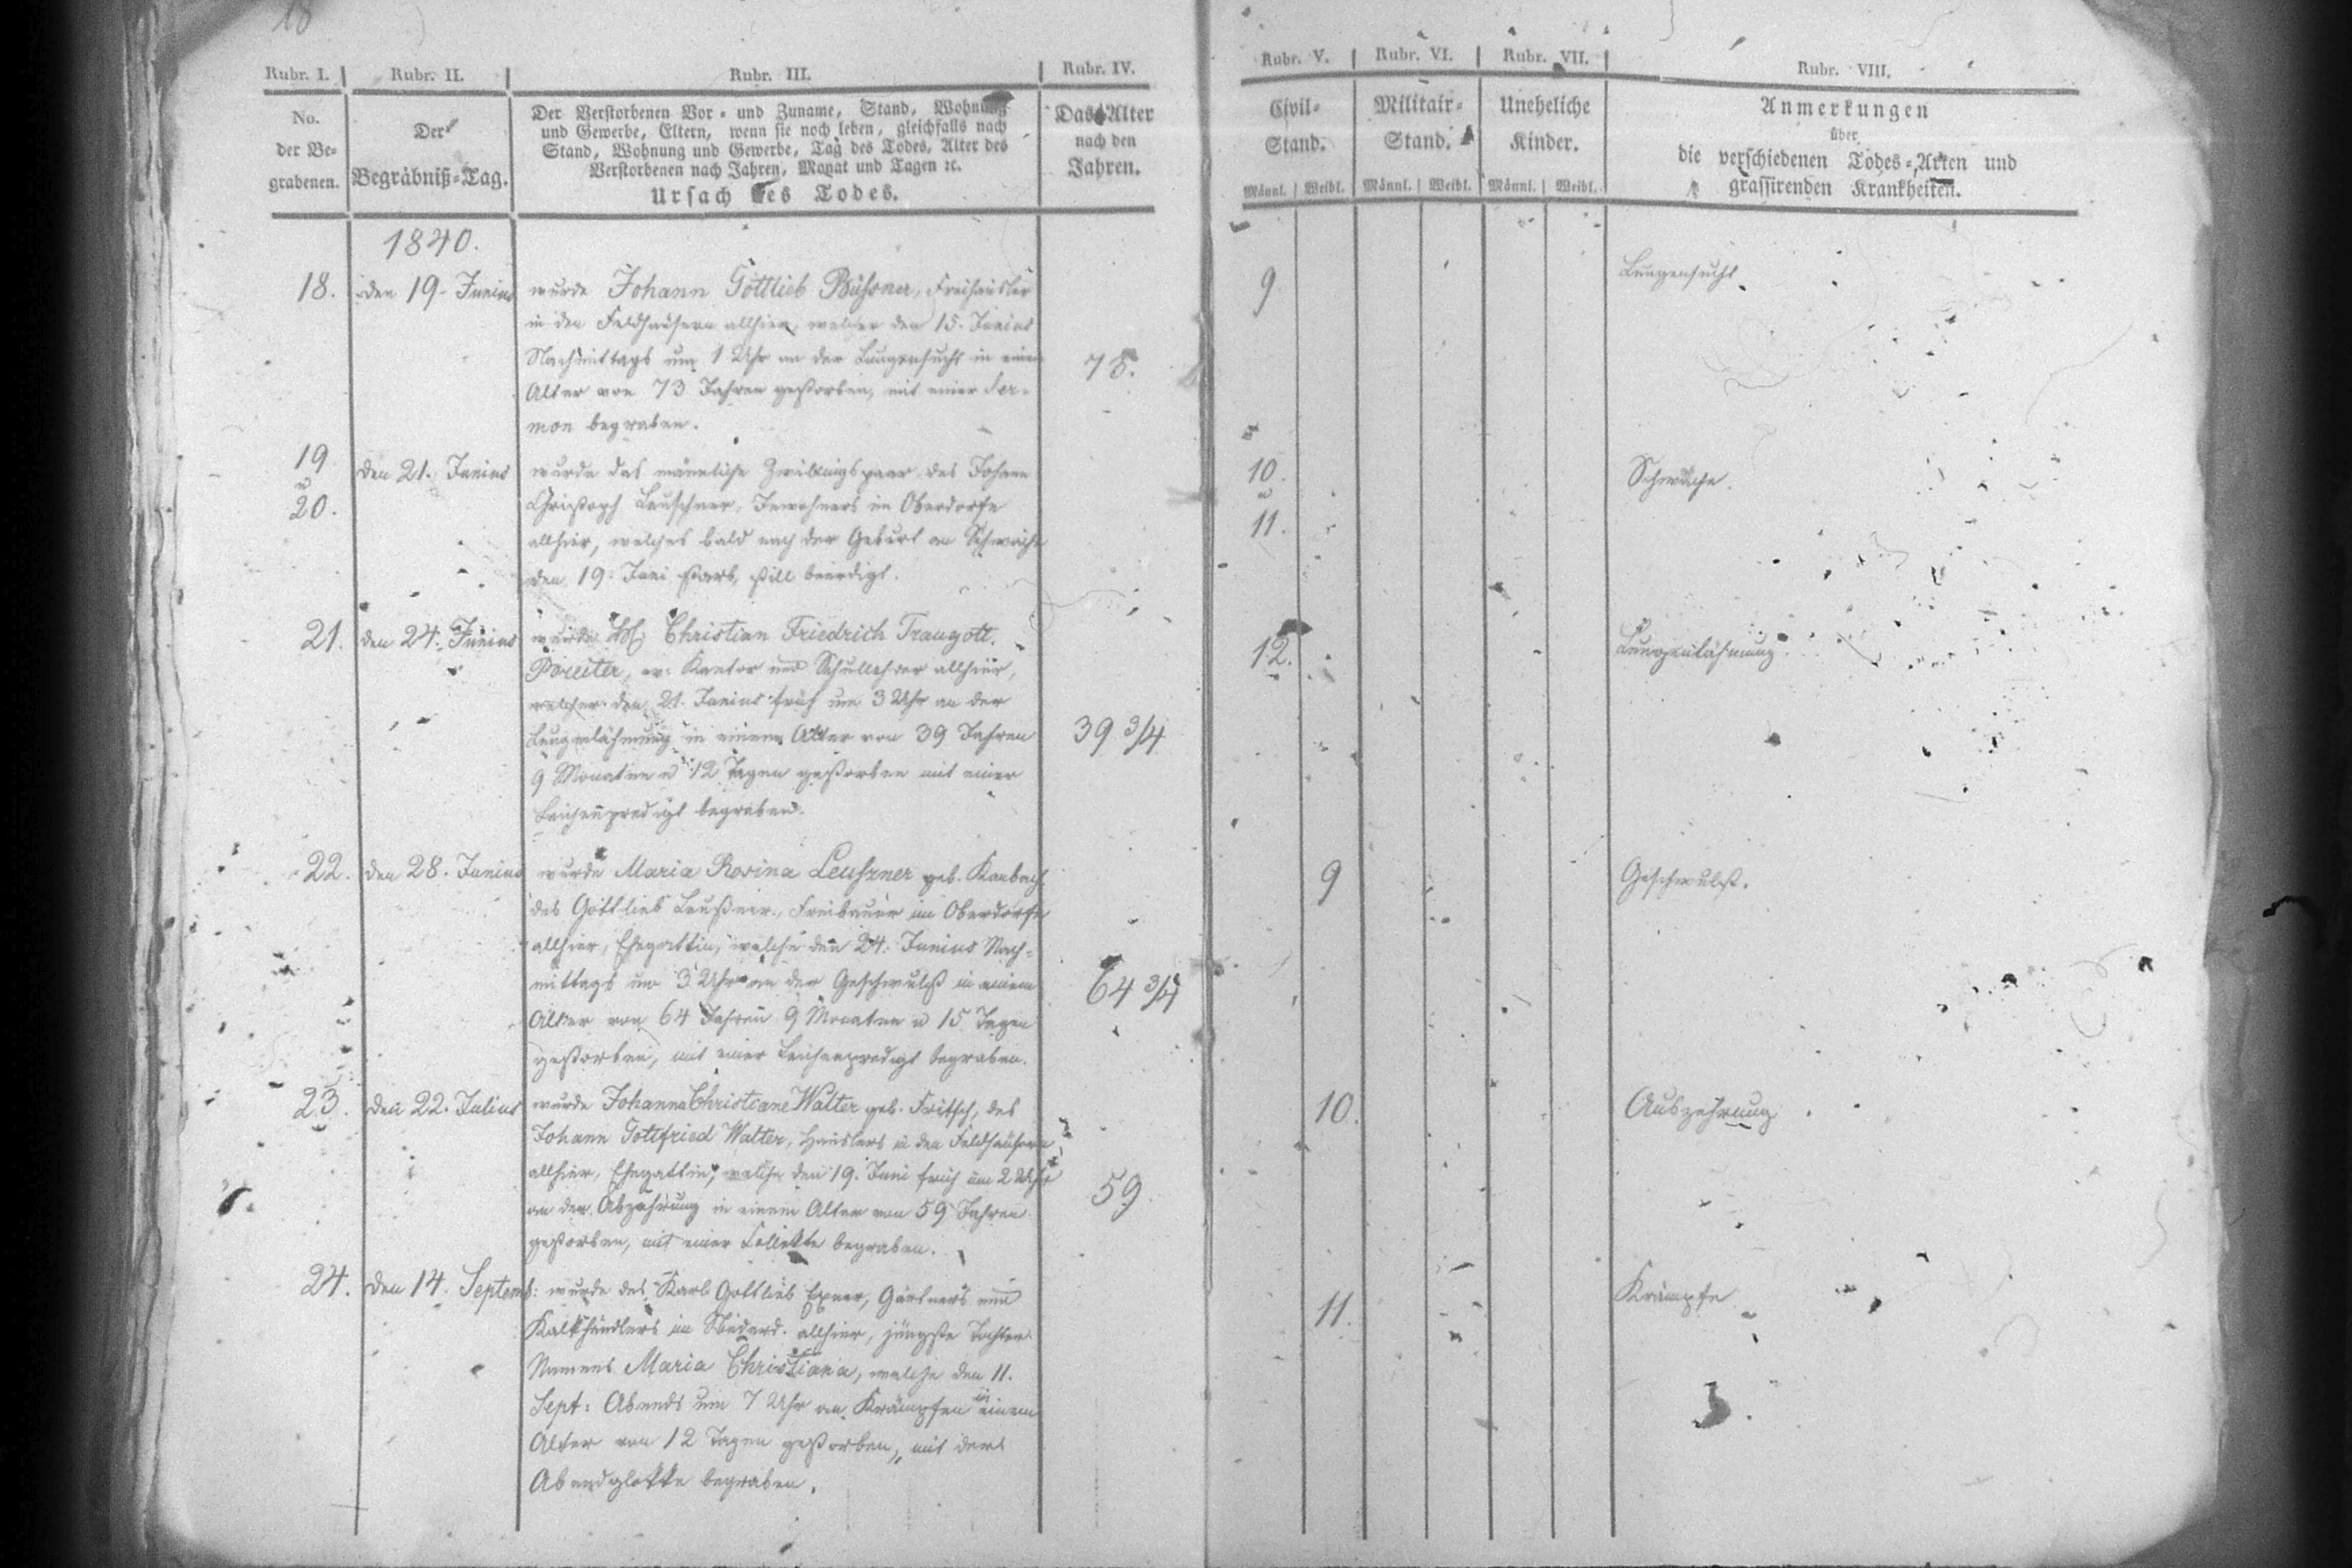 18
Rubr. I. Rubr. II. Rubr. III. Rubr. IV.
No. der Begrabenen.
Der Begräbniß=Tag.
Der Verstorbenen Vor= und Zuname, Stand, Wohnung
und Gewerbe, Eltern, wenn sie noch leben, gleichfalls nach
Stand, Wohnung und Gewerbe, Tag des Todes, Alter des
Verstorbenen nach Jahren, Monat und Tagen ꝛc.
Ursach des Todes.
Das Alter
nach den
Jahren.
1840.
18. den 19. Junius
wurde Johann Gottlieb, Freihäusler
in den Feldhäusern allhier, welcher den 15. Junius
Nachmittags um 1 Uhr an der Lungensucht in einem
Alter von 73 Jahren gestorben, mit einer Ser=
mon begraben.
73.
19 u 20. den 21. Junius
wurde das männliche Zwillingspaar des Johann
Christoph Leuschner, Inwohners im Oberdorfe
allhier, welches bald nach der Geburt an Schwäche
den 19. Juni starb, still beerdigt.
21. den 24. Junius
wurde Christian Friedrich Traugott
ev. Kantor und Schullehrer allhier,
welcher den 21. Junius früh um 3 Uhr an der
Lungenlähmung in einem Alter von 39 Jahren
9 Monaten u 12 Tagen gestorben mit einer
Leichenpredigt begraben.
39 3/4
22. den 28. Junius
wurde Maria Rosina Leuszner geb.
des Gottlieb Leußner, Freibauer im Oberdorfe
allhier, Ehegattin, welche den 24. Junius Nach=
mittags um 3 Uhr an der Geschwulst in einem
Alter von 64 Jahren 9 Monaten u 15 Tagen
gestorben, mit einer Leichenpredigt begraben.
64 3/4
23. den 22. Julius
wurde Johanna Christiane Walter geb. Fritsch, des
Johann Gottfried Walter, Häuslers in den Feldhäusern
allhier, Ehegattin, welche den 19. Juni früh um 2 Uhr
an der Abzehrung in einem Alter von 59 Jahren
gestorben, mit einer Collekte begraben.
59.
24. den 14. Septemb:
wurde des Karl Gottlieb Exner, Gärtners und
Kalkhändlers im allhier, jüngste Tochter
Namens Maria Christiana, welche den 11.
Sept: Abends um 7 Uhr an Krämpfen in einem
Alter von 12 Tagen gestorben, mit der
Abendglokke begraben.
Rubr. V. Rubr. VI. Rubr. VII. Rubr. VIII.
Civil=
Stand.
Militair=
Stand.
Uneheliche
Kinder.
Männl. Weibl. Männl. Weibl. Männl. Weibl.
Anmerkungen
über
die verschiedenen Todes=Arten und
grassirenden Krankheiten.
9 Lungensucht
10. u 11. Schwäche.
12. Lungenlähmung.
9 Geschwulst.
10. Auszehrung
11. Krämpfe